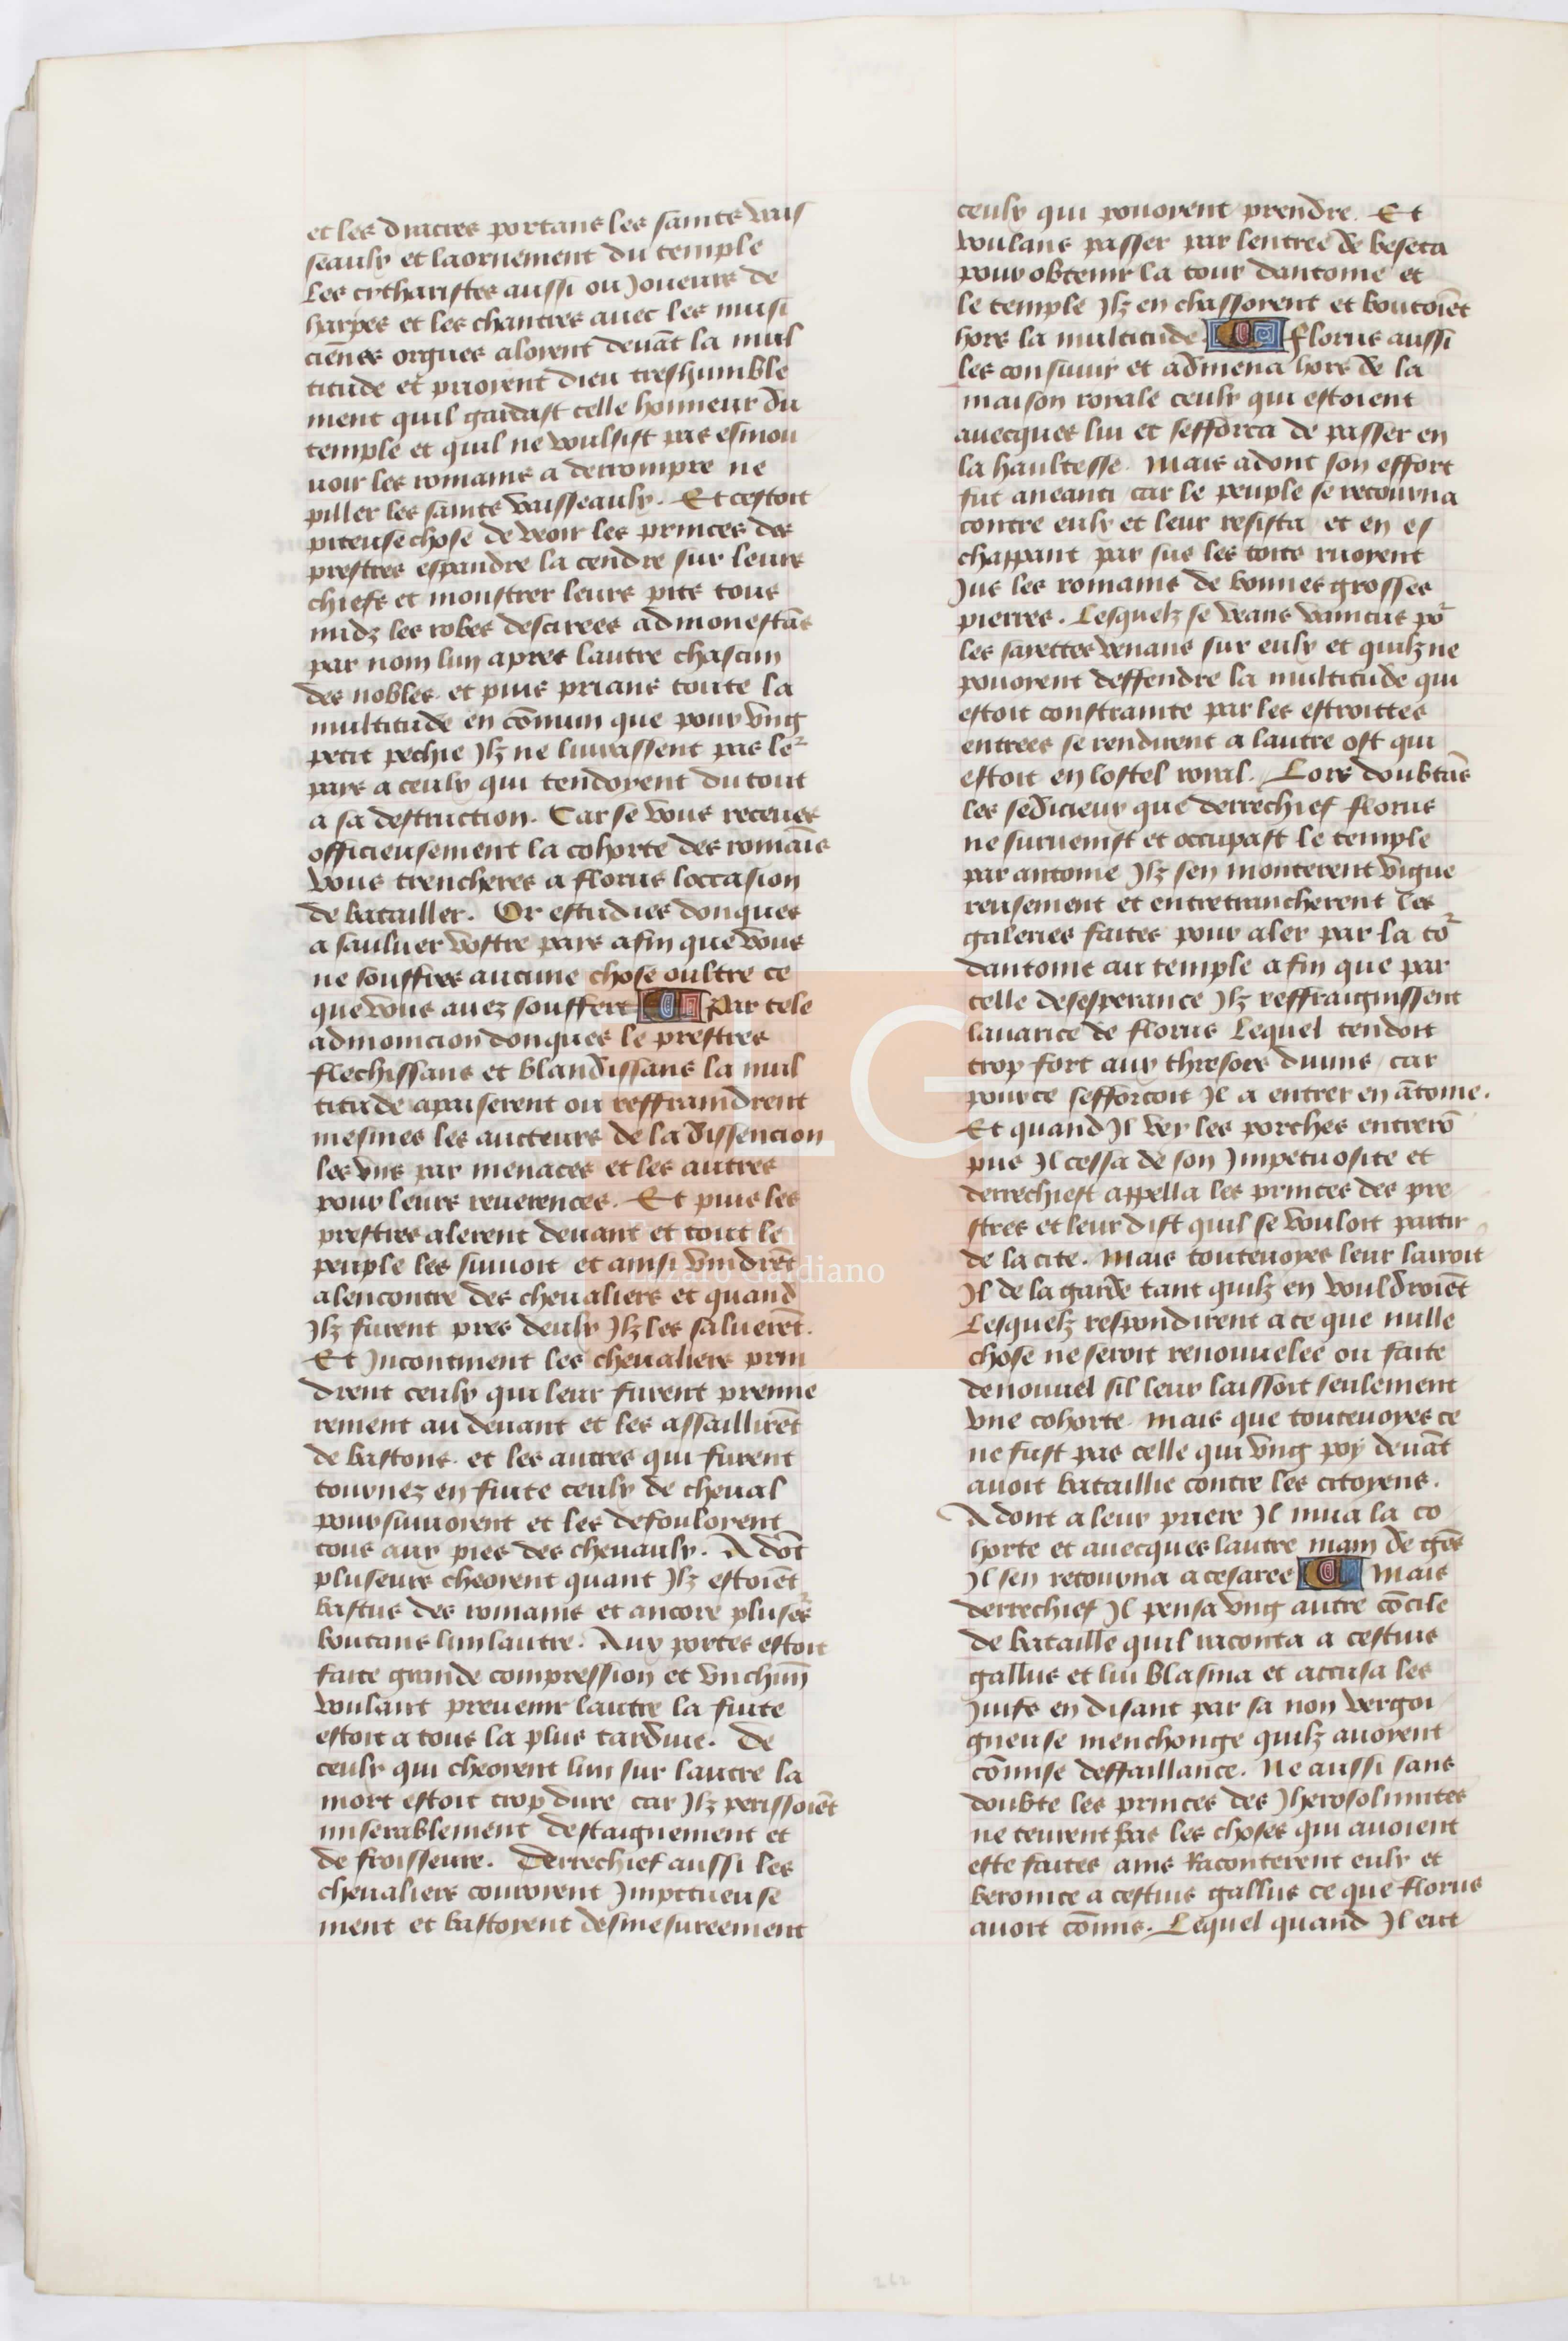 et les diacres portans les sains vais
seaulx et laornement du temple
Les cytharistes aussi ou Joueurs de
harpes et les chantres auec les musi
ciēnes orgues aloyent deuāt la mul
titude et prioyent dieu treshumble
ment quil gardast celle honneur du
temple et quil ne voulsist pas esmou
uoir les romains a derrompre ne
piller les sains vaisseaulx. Et cestoit
piteuse chose de veoir les princes des
prestres espandre la cendre sur leurs
chiefs et monstrer leurs pits tous
nudz les robes descirees admonestās
par nom lun apres lautre chascun
des nobles et puis prians toute la
multitude en cōmun que pour vng
petit pechie Jlz ne liurassent pas le²
pays a ceulx qui tendoyent du tout
a sa destruction. Car se vous receues
officieusement la cohorte des romāis
vous trencheres a florus loccasion
de batailler. Or estudies donques
a sauluer vostre pays afin que vous
ne souffres aucune chose oultre ce
que vous auez souffert Par tele
admonicion donques le prestres
flechissans et blandissans la mul
titude apaiserent ou reffraindrent
mesmes les aucteurs de la dissencion
les vns par menaces et les autres
pour leurs reuerences. Et puis les
prestres alerent deuant et tout le
peuple les suiuoit et ainsi vindrēt
alencontre des cheualiers et quand
Jlz furent pres deulx Jlz les saluerēt.
Et Jncontinent les cheualiers prin
drent ceulx qui leur furent premie
rement au deuant et les assaillirēt
de bastons et les autres qui furent
tournez en fuite ceulx de cheual
poursuiuoient et les defouloyent
tous aux pies des cheuaulx. Adōt
pluseurs cheoyent quant Jlz estoiēt
bastus des romains et ancore pluse²s
boutans lun lautre. Aux portes estoit
faite grande compression et vnchūn
voulant preuenir lautre la fuite
estoit a tous la plus tardiue. De
ceulx qui cheoyent lun sur lautre la
mort estoit trop dure car Jlz perissoiēt
miserablement destaignement et
de froisseure. Derrechief aussi les
cheualiers couroyent Jmpetueuse
ment et bastoyent desmesureement
ceulx qui pouoyent prendre. Et
voulans passer par lentree de beseta
pour obtenir la tour dantoine et
le temple Jlz en chassoyent et boutoiēt
hors la multitude florus aussi
les consuiuy et admena hors de la
maison royale ceulx qui estoient
auecques lui et sefforca de passer en
la haultesse. Mais adont son effort
fut aneanti car le peuple se retourna
contre eulx et leur resista et en es
chappant par sus les toits ruoyent
Jus les romains de bonnes grosses
pierres. Lesquelz se veans vaincus po²
les saiettes venans sur eulx et quilz ne
pouoyent deffendre la multitude qui
estoit constrainte par les estroittes
entrees se rendirent a lautre ost qui
estoit en lostel royal. Lors doubtās
les sedicieux que derrechief florus
ne suruenist et occupast le temple
par antoine Jlz sen monterent vigue
reusement et entretrancherent les
galeries faites pour aler par la to²
dantoine au temple afin que par
celle desesperance Jlz reffraignissent
lauarice de florus Lequel tendoit
trop fort aux thresors diuins car
pource sefforcoit Jl a entrer en ātoine.
Et quand Jl vey les porches entrerō
pus Jl cessa de son Jmpetuosite et
derrechiest appella les princes des pre
stres et leur dist quil se vouloit partir
de la cite. Mais touteuoyes leur lairoit
Jl de la garde tant quilz en vouldroiēt
Lesquelz respondirent a ce que nulle
chose ne seroit renouuelee ou faite
de nouuel sil leur laissoit seulement
vne cohorte. Mais que touteuoyes ce
ne fust pas celle qui vng poy deuāt
auoit bataillie contre les citoyens.
Adont a leur priere Jl mua la co
horte et auecques lautre main de gēs
Jl sen retourna a cesaree Mais
derrechief Jl pensa vng autre cōcile
de bataille quil raconta a cestius
gallus et lui blasma et accusa les
Juifs en disant par sa non vergoi
gneuse menchonge quilz auoyent
cōmise deffaillance. Ne aussi sans
doubte les princes des Jherosolimites
ne teurent pas les choses qui auoient
este faites ains Raconterent eulx et
beronice a cestius gallus ce que florus
auoit cōmis. Lequel quand Jl eut
262
LG
Lázaro Galdiano